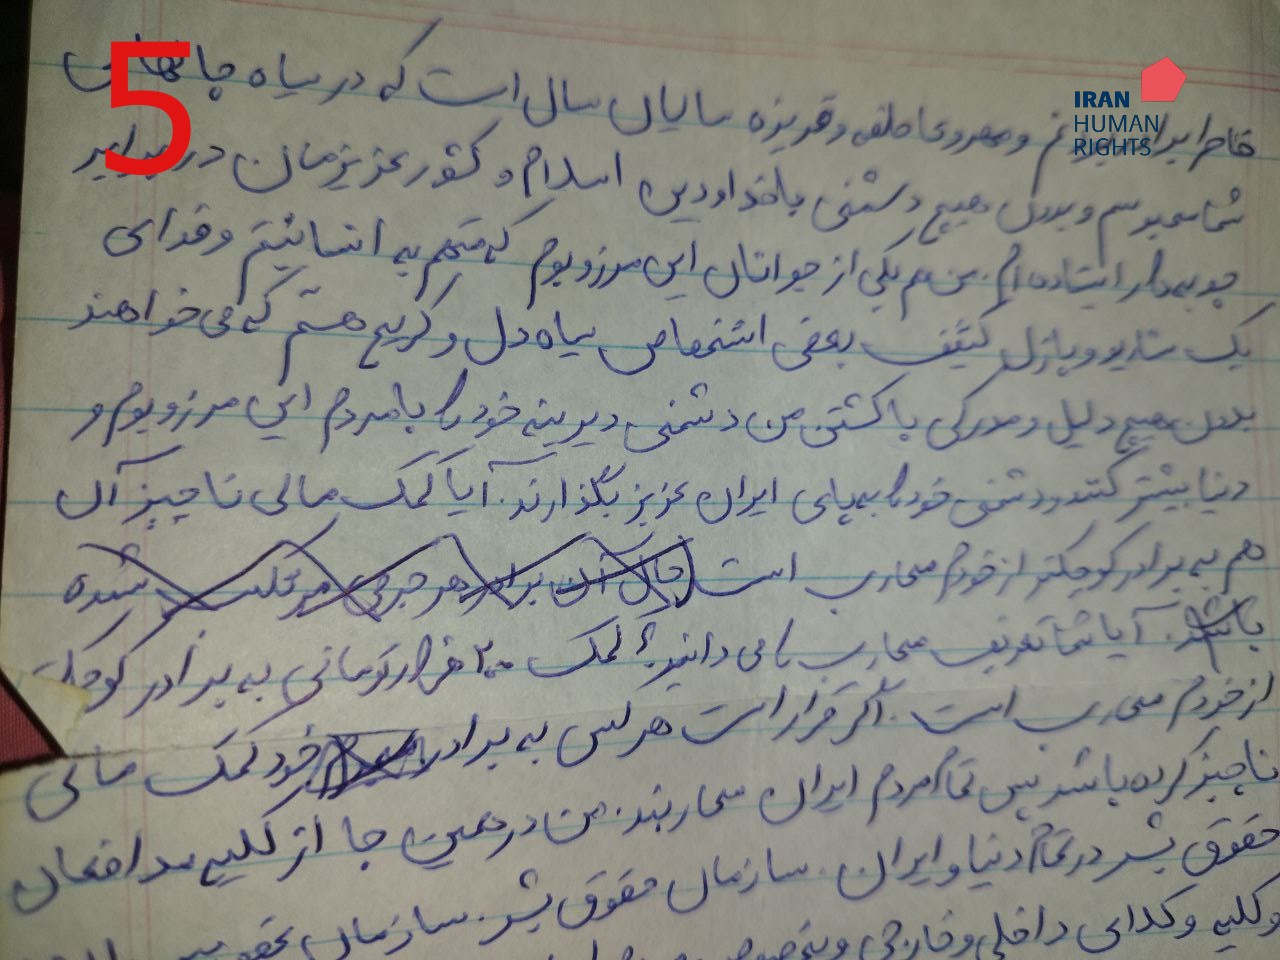 5
IRAN
HUMAN
RIGHTS
و مهر و عاطفه و قریزه سالیان سال است که در سیاه چالهای
شما محبوسم و بدون هیچ دشمنی با خدا و دین اسلام و کشور عزیزمان در برابر
چوبه دار ایستاده ام. من هم یکی از جوانان این مرز و بوم که متهم به انسانیتم و فدای
یک سناریو و پازل کثیف بعضی اشخاص سیاه دل و کریح هستم که می خواهند
بدون هیچ دلیل و مدرکی با کشتن من دشمنی دیرینه خود را با مردم این مرز و بوم و
دنیا بیشتر کنند و دشمنی خود را به پای ایران عزیز بگذارند. آیا کمک مالی ناچیز آن
هم به برادر کوچکتر از خودم محارب است
آیا شما تعریف محارب را می دانید؟ کمک ۲۰۰ هزار تومانی به برادر کوچکتر
از خودم محارب است. اگر قرار است هر کس به برادر خود کمک مالی
ناچیز کرده باشد پس تمام مردم ایران محاربند. من در همین جا از کلیه مدافعان
حقوق بشر در تمام دنیا و ایران. سازمان حقوق بشر. سازمان عفو
و کلیه وکلای داخلی و خارجی و